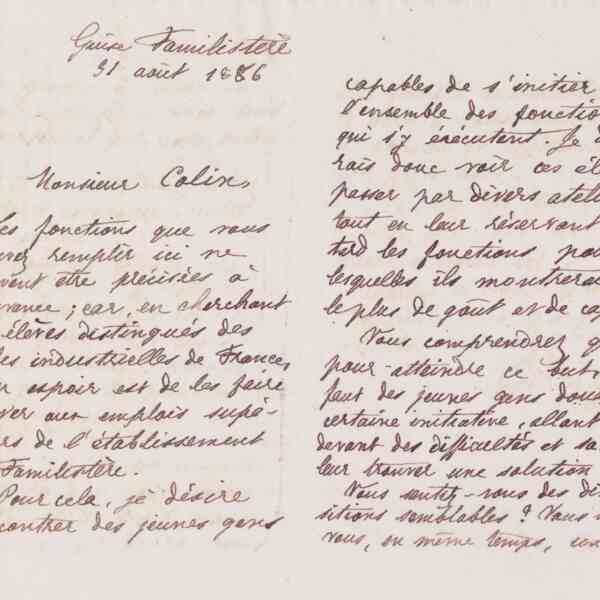 Guise Familistère
31 août 1886
Monsieur Colin,
les fonctions que vous
remplir ici ne
être précisées à
; car, en cherchant
élèves distingués des
industrielles de France,
espoir est de les faire
aux emplois supé-
de l'établissement
Familistère.
Pour cela, je désire
des jeunes gens
capables de s'initier
l'ensemble des
qui s'y exécutent. Je
donc voir ces
passer par divers
tout en leur réservant
tard les fonctions
lesquelles ils
le plus de goût et de
Vous comprendrez
pour atteindre ce but,
faut des jeunes gens
certaine initiative, allant
devant des difficultés et
leur trouver une solution
Vous sentez-vous des
sitions semblables ? Vous
vous, en même temps,